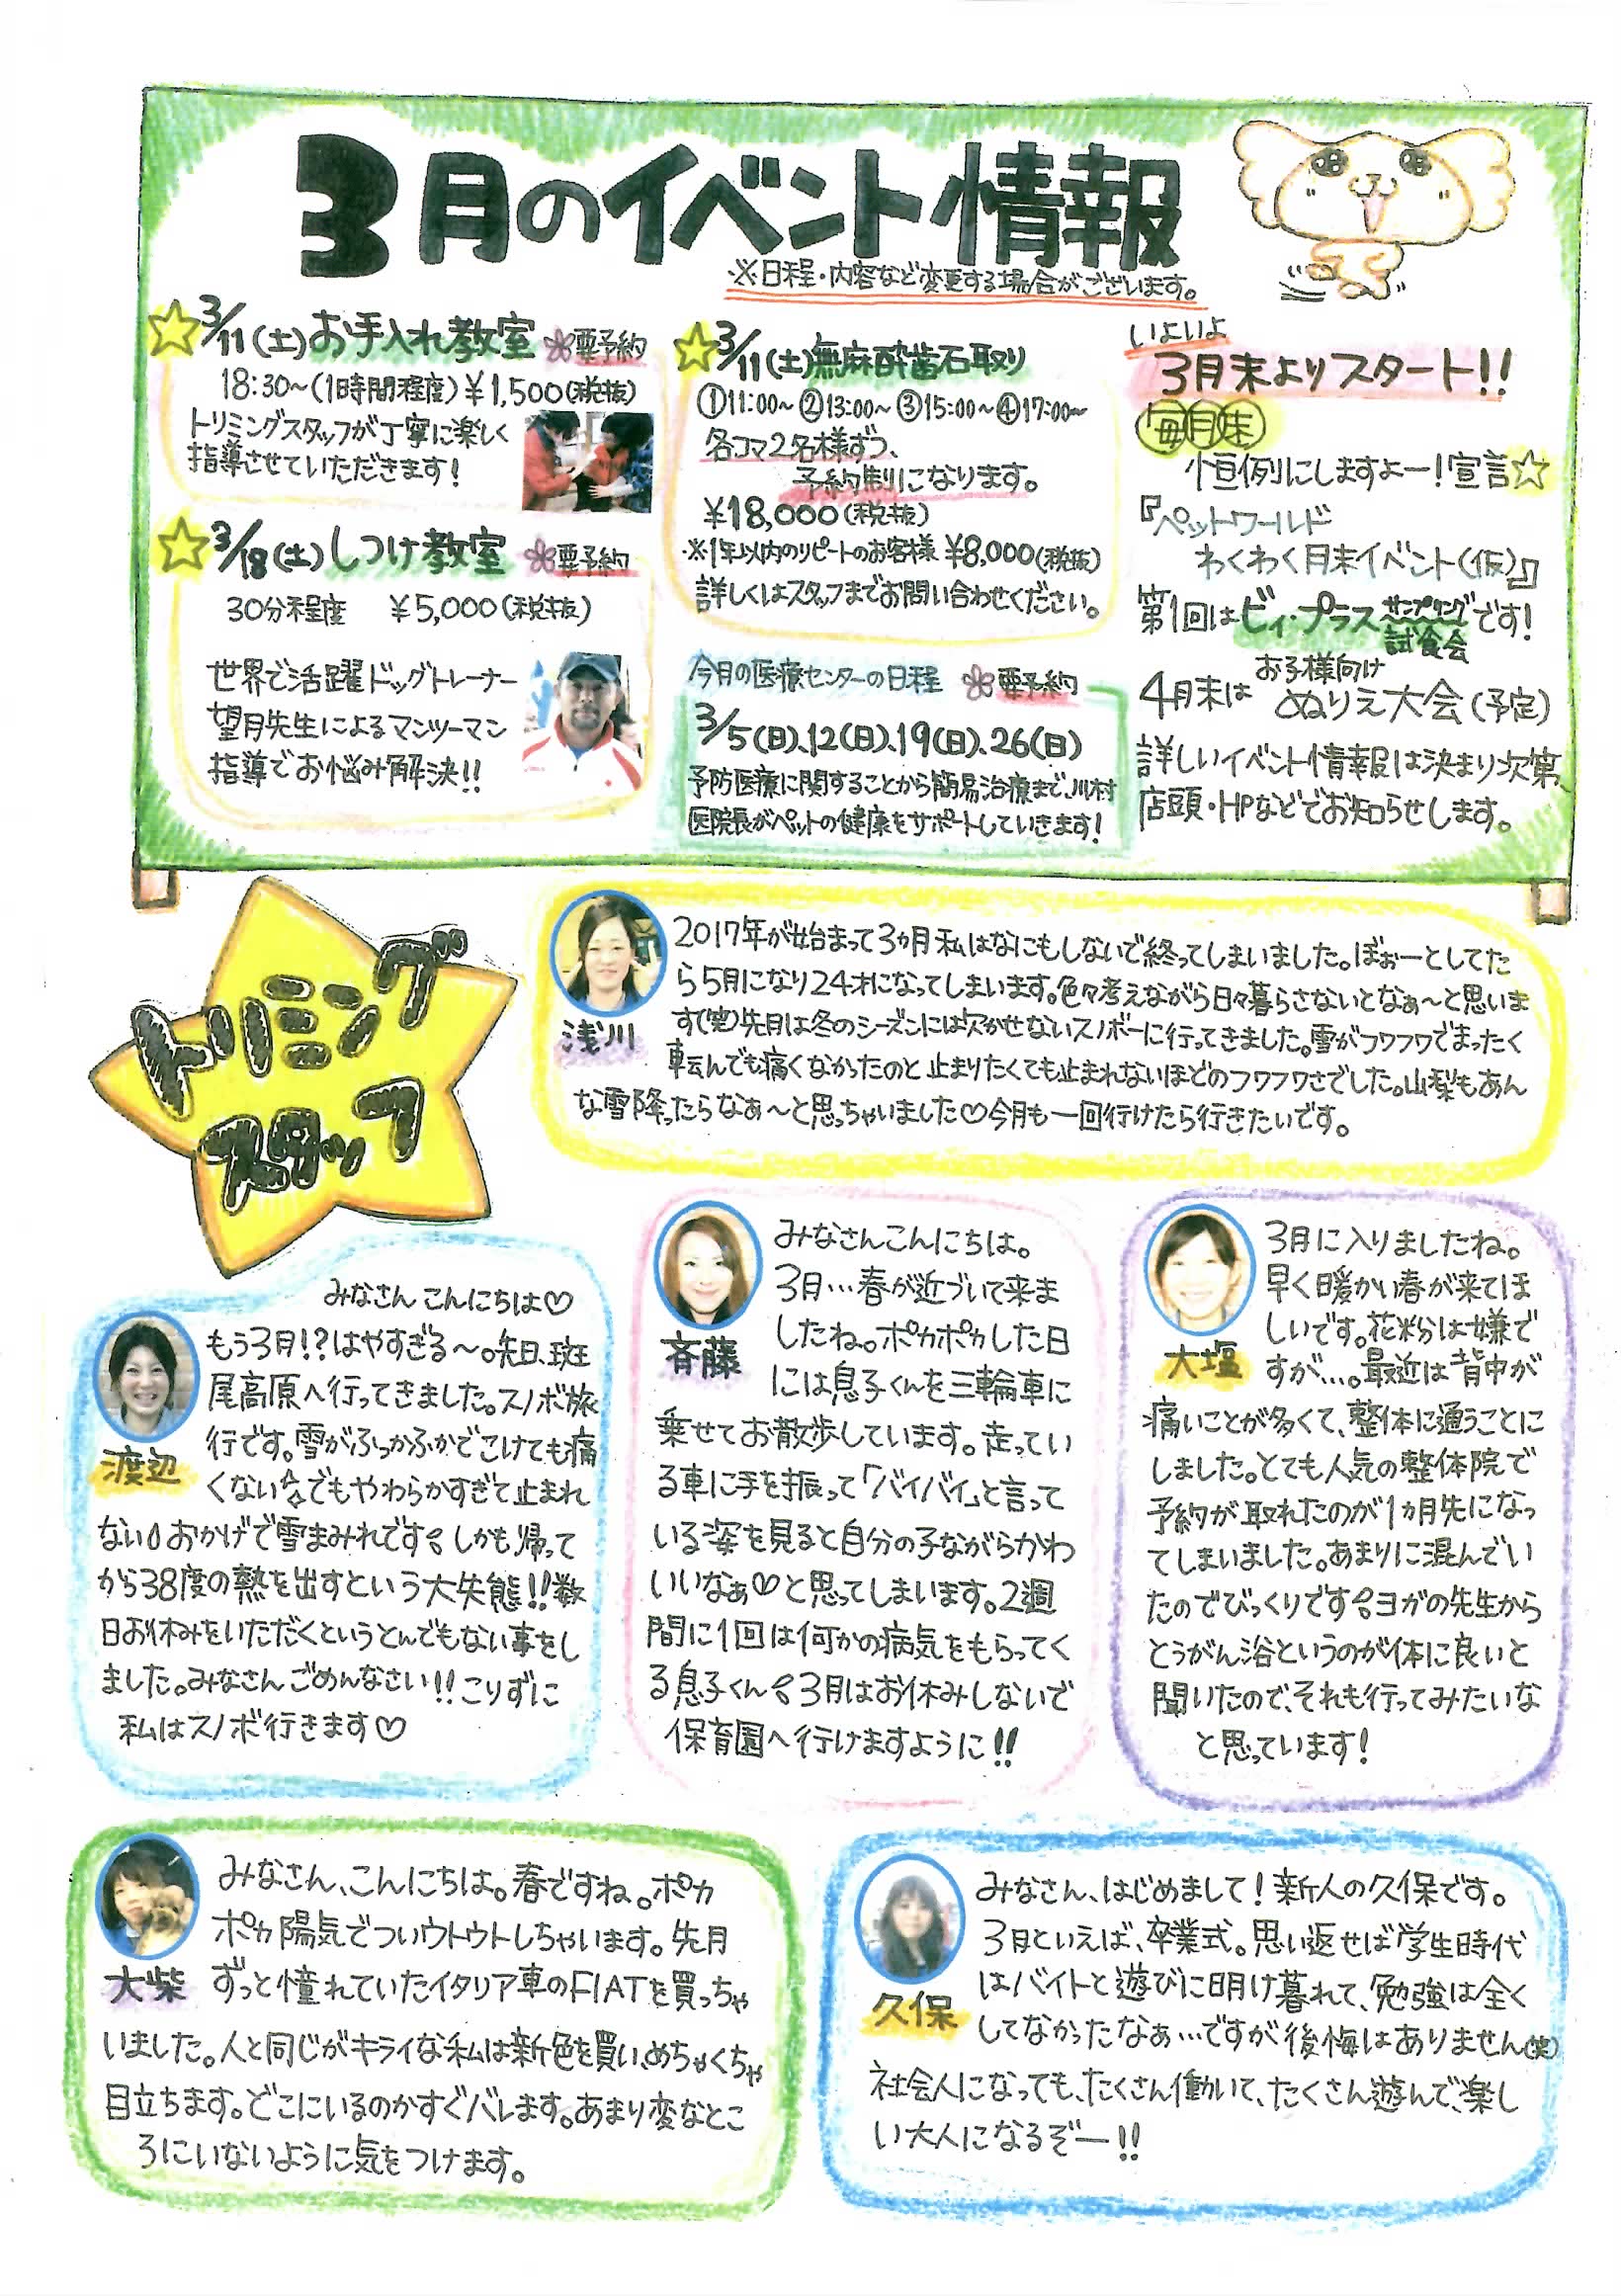 3月のイベント情報
※日程・内容など変更する場合がございます。
☆3/11(土)お手入れ教室 要予約
18:30~(1時間程度)¥1,500(税抜)
トリミングスタッフが丁寧に楽しく
指導させていただきます!
☆3/18(土)しつけ教室 要予約
30分程度 ¥5,000(税抜)
世界で活躍ドッグトレーナー
望月先生によるマンツーマン
指導でお悩み解決!!
☆3/11(土)無麻酔歯石取り
①11:00~②13:00~③15:00~④17:00~
各コマ2名様ずつ、
予約制になります。
¥18,000(税抜)
※1年以内のリピートのお客様 ¥8,000(税抜)
詳しくはスタッフまでお問い合わせください。
今月の医療センターの日程 要予約
3/5(日)、12(日)、19(日)、26(日)
予防医療に関することから簡易治療まで、川村
医院長がペットの健康をサポートしていきます!
いよいよ
3月末よりスタート!!
毎月末
恒例にしますよー!宣言☆
『ペットワールド
わくわく月末イベント(仮)』
第1回はビィ・プラスサンプリング試食会です!
4月末はお子様向けぬりえ大会(予定)
詳しいイベント情報は決まり次第、
店頭・HPなどでお知らせします。
トリミング
スタッフ
浅川
2017年が始まって3ヵ月私はなにもしないで終ってしまいました。ぼぉーとしてた
ら5月になり24才になってしまいます。色々考えながら日々暮らさないとなぁ~と思いま
す(笑)先月は冬のシーズンには欠かせないスノボーに行ってきました。雪がフワフワでまったく
転んでも痛くなかったのと止まりたくても止まれないほどのフワフワさでした。山梨もあん
な雪降ったらなぁ~と思っちゃいました♡今月も一回行けたら行きたいです。
渡辺
みなさんこんにちは♡
もう3月!?はやすぎる~。先日、斑
尾高原へ行ってきました。スノボ旅
行です。雪がふっかふかでこけても痛
くない☆でもやわらかすぎて止まれ
ない おかげで雪まみれです しかも帰って
から38度の熱を出すという大失態!!数
日お休みをいただくというとんでもない事をし
ました。みなさんごめんなさい!!こりずに
私はスノボ行きます♡
斉藤
みなさんこんにちは。
3月…春が近づいて来ま
したね。ポカポカした日
には息子くんを三輪車に
乗せてお散歩しています。走ってい
る車に手を振って「バイバイ」と言って
いる姿を見ると自分の子ながらかわ
いいなぁ♡と思ってしまいます。2週
間に1回は何かの病気をもらってく
る息子くん 3月はお休みしないで
保育園へ行けますように!!
大塩
3月に入りましたね。
早く暖かい春が来てほ
しいです。花粉は嫌で
すが…。最近は背中が
痛いことが多くて、整体に通うことに
しました。とても人気の整体院で
予約が取れたのが1ヵ月先になっ
てしまいました。あまりに混んでい
たのでびっくりです ヨガの先生から
とうがん浴というのが体に良いと
聞いたので、それも行ってみたいな
と思っています!
大柴
みなさん、こんにちは。春ですね。ポカ
ポカ陽気でついウトウトしちゃいます。先月
ずっと憧れていたイタリア車のFIATを買っちゃ
いました。人と同じがキライな私は新色を買い、めちゃくちゃ
目立ちます。どこにいるのかすぐバレます。あまり変なとこ
ろにいないように気をつけます。
久保
みなさん、はじめまして!新人の久保です。
3月といえば、卒業式。思い返せば学生時代
はバイトと遊びに明け暮れて、勉強は全く
してなかったなぁ…ですが後悔はありません(笑)
社会人になっても、たくさん働いて、たくさん遊んで、楽し
い大人になるぞー!!